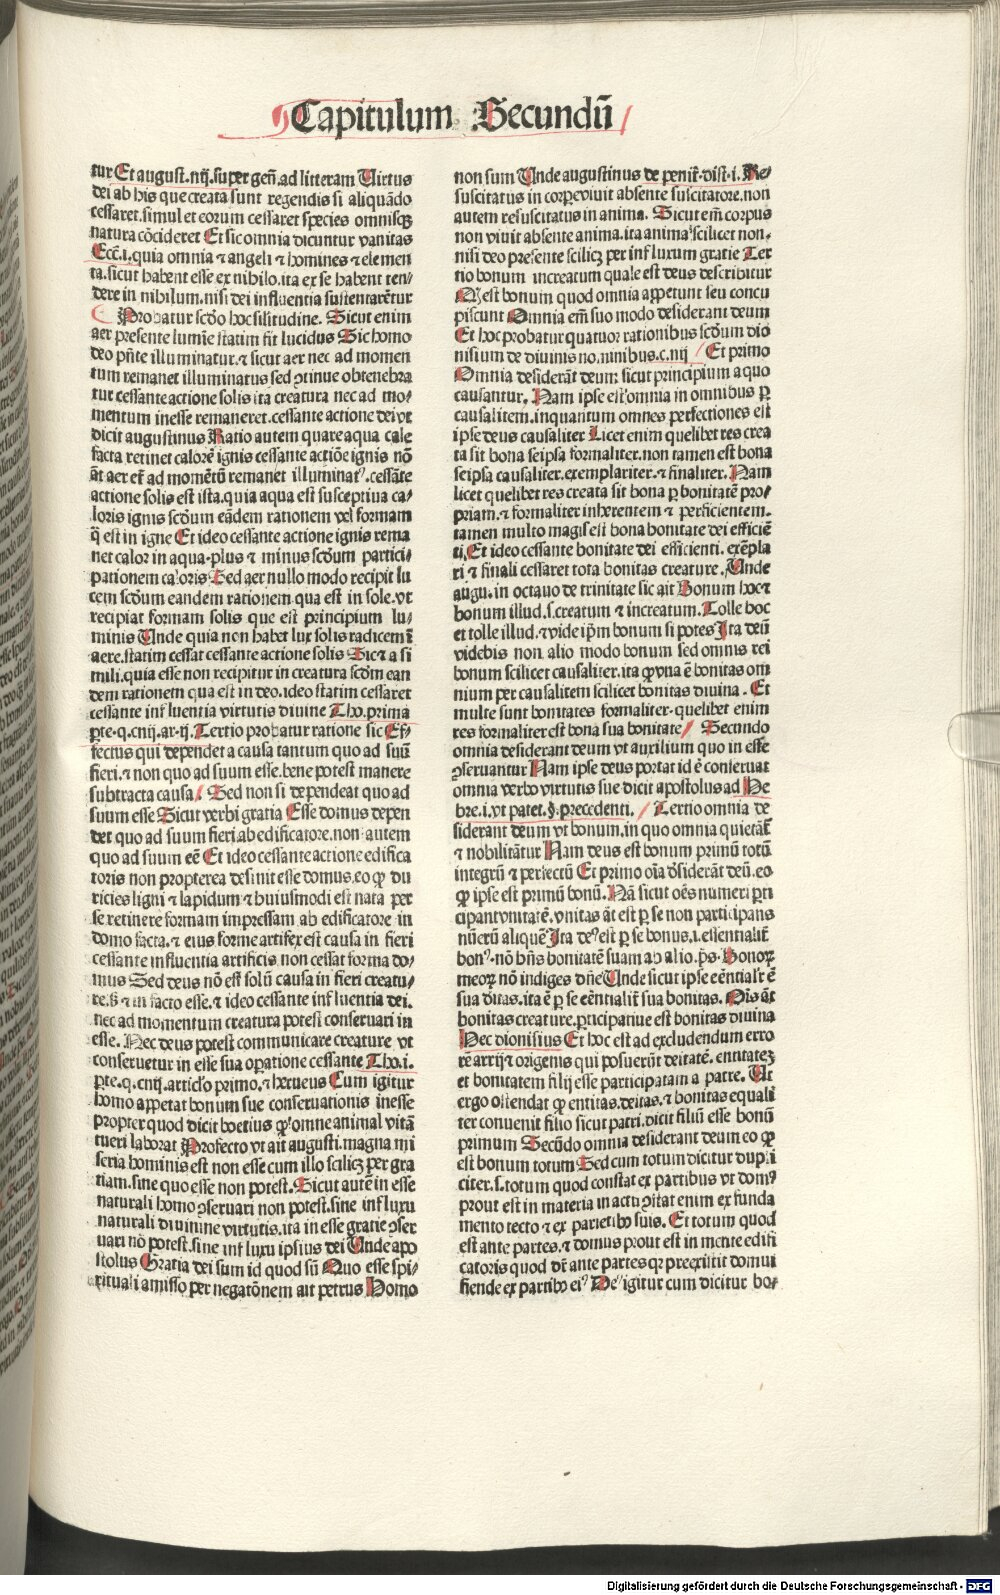 Capitulum Secundū
tur Et august. iiij. super geñ. ad litteram Uirtus
dei ab his que creata sunt regendis si aliquādo
cessaret. simul et eorum cessaret species omnisqƺ
natura cōcideret Et sic omnia dicuntur vanitas
Ecc̄. i. quia omnia ⁊ angeli ⁊ homines ⁊ elemen
ta. sicut habent esse ex nihilo. ita ex se habent ten/
dere in nihilum. nisi dei influentia sustentarētur
Probatur scd̄o hoc silitudine. Sicut enim
aer presente lumīe statim fit lucidus Sic homo
deo pn̄te illuminatur. ⁊ sicut aer nec ad momen
tum remanet illuminatus sed ꝯtinue obtenebra
tur cessante actione solis ita creatura nec ad mo/
mentum inesse remaneret. cessante actione dei vt
dicit augustinus Ratio autem quare aqua cale
facta retinet calorē ignis cessante actiōe ignis nō
āt aer eſ ad momētū remanet illuminatꝰ. cessāte
actione solis est ista. quia aqua est susceptiua ca/
loris ignis scd̄um eādem rationem vel formam
q̄ est in igne Et ideo cessante actione ignis rema
net calor in aqua. plus ⁊ minus scd̄um partici/
pationem caloris Sed aer nullo modo recipit lu
cem scd̄um eandem rationem qua est in sole. vt
recipiat formam solis que est principium lu/
minis Unde quia non habet lux solis radicem ī
aere. statim cessat cessante actione solis Sic ⁊ a si
mili. quia esse non recipitur in creatura scd̄m ean
dem rationem qua est in deo. ideo statim cessaret
cessante influentia virtutis diuine Tho. prima
ꝑte. q. ciiij. ar. ij. Tertio probatur ratione sic Ef/
fectus qui dependet a causa tantum quo ad suū
fieri. ⁊ non quo ad suum esse. bene potest manere
subtracta causa / Sed non si dependeat quo ad
suum esse Sicut verbi gratia Esse domus depen
det quo ad suum fieri ab edificatore. non autem
quo ad suum eē Et ideo cessante actione edifica
toris non propterea desinit esse domus. eo ꝙ du
ricies ligni ⁊ lapidum ⁊ huiusmodi est nata per
se retinere formam impressam ab edificatore in
domo facta. ⁊ eius forme artifex est causa in fieri
cessante influentia artificis non cessat forma do/
mus Sed deus nō est solū causa in fieri creatu/
re. ß ⁊ in facto esse. ⁊ ideo cessante influentia dei.
nec ad momentum creatura potest conseruari in
esse. Nec deus potest communicare creature vt
conseruetur in esse sua oꝑatione cessante Tho. i.
ꝑte. q. ciiij. articĺo primo. ⁊ herueus Cum igitur
homo appetat bonum sue conseruationis inesse
propter quod dicit boetius ꝙ omne animal vitā
tueri laborat Profecto vt ait augusti. magna mi
seria hominis est non esse cum illo scilicƺ per gra
tiam. sine quo esse non potest. Sicut autē in esse
naturali homo ꝯseruari non potest. sine influxu
naturali diuinine virtutis. ita in esse gratie ꝯser
uari nō potest. sine influxu ipsius dei Unde apo
stolus Gratia dei sum id quod sū Quo esse spi/
rituali amisso per negatōnem ait petrus Homo
non sum Unde augustinus de penit̄. dist. i. Re/
suscitatus in corꝑe viuit absente suscitatore. non
autem resuscitatus in anima. Sicut em̄ corpus
non viuit absente anima. ita anima scilicet non.
nisi deo presente scilicƺ per influxum gratie Ter
tio bonum increatum quale est deus describitur
est bonum quod omnia appetunt seu concu
piscunt Omnia em̄ suo modo desiderant deum
Et hoc probatur quatuor rationibus scd̄um dio
nisium de diuinis no. minibus. c. iiij / Et primo
Omnia desiderāt deum. sicut principium a quo
causantur. Nam ipse est omnia in omnibus ꝑ
causalitem. inquantum omnes perfectiones est
ipse deus causaliter Licet enim quelibet res crea
ta sit bona seipsa formaliter. non tamen est bona
seipsa causaliter. exemplariter. ⁊ finaliter. Nam
licet quelibet res creata sit bona ꝑ bonitatē pro/
priam. ⁊ formaliter inherentem ⁊ perficientem.
tamen multo magis est bona bonitate dei efficiē
ti. Et ideo cessante bonitate dei efficienti. exēpla
ri ⁊ finali cessaret tota bonitas creature. Unde
augu. in octauo de trinitate sic ait Bonum hoc ⁊
bonum illud. s. creatum ⁊ increatum. Tolle hoc
et tolle illud. ⁊ vide ip̄m bonum si potes Ita deū
videbis non alio modo bonum sed omnis rei
bonum scilicet causaliter. ita ꝙ vna ē bonitas om
nium per causalitem scilicet bonitas diuina. Et
multe sunt bonitates formaliter. quelibet enim
res formaliter est bona sua bonitate / Secundo
omnia desiderant deum vt auxilium quo in esse
ꝯseruantur Nam ipse deus portat id ē conseruat
omnia verbo virtutis sue dicit apostolus ad He
bre. i. vt patet. §. precedenti. / Tertio omnia de
siderant deum vt bonum. in quo omnia quietāt̄
⁊ nobilitātur Nam deus est bonum primū totū
integrū ⁊ perfectū Et primo oīa dꝭsiderāt deū. eo
ꝙ ipse est primū bonū. Nā sicut oēs numeri ꝑti
cipant vnitatē. vnitas āt est ꝑ se non participans
nūerū aliquē Ita deꝰ est ꝑ se bonus. i. essentialit̄
bonꝰ. nō hn̄s bonitatē suam ab alio. ꝓs. Bonoꝝ
meoꝝ nō indiges dn̄e Unde sicut ipse eēntialr̄ ē
sua ditas. ita ē ꝑ se eēntialit̄ sua bonitas. Oīs āt
bonitas creature. ꝑticipatiue est bonitas diuina
Hec dionisius Et hoc est ad excludendum erro
rē arrij ⁊ origenis qui posuerūt deitatē. entitateƺ
et bonitatem filij esse participatam a patre. Ut
ergo ostendat ꝙ entitas. deitas. ⁊ bonitas equali
ter conuenit filio sicut patri. dicit filiū esse bonū
primum Secūdo omnia desiderant deum eo ꝙ
est bonum totum Sed cum totum dicitur dupli
citer. s. totum quod constat ex partibus vt domꝰ
prout est in materia in actu ꝯstat enim ex funda
mento tecto ⁊ ex parietibꝰ suis. Et totum quod
est ante partes. ⁊ domus prout est in mente edifi
catoris quod dr̄ ante partes qꝛ preexistit domui
fiende ex partibꝰ eiꝰ Deꝰ igitur cum dicitur bo/
Digitalisierung gefördert durch die Deutsche Forschungsgemeinschaft - DFG